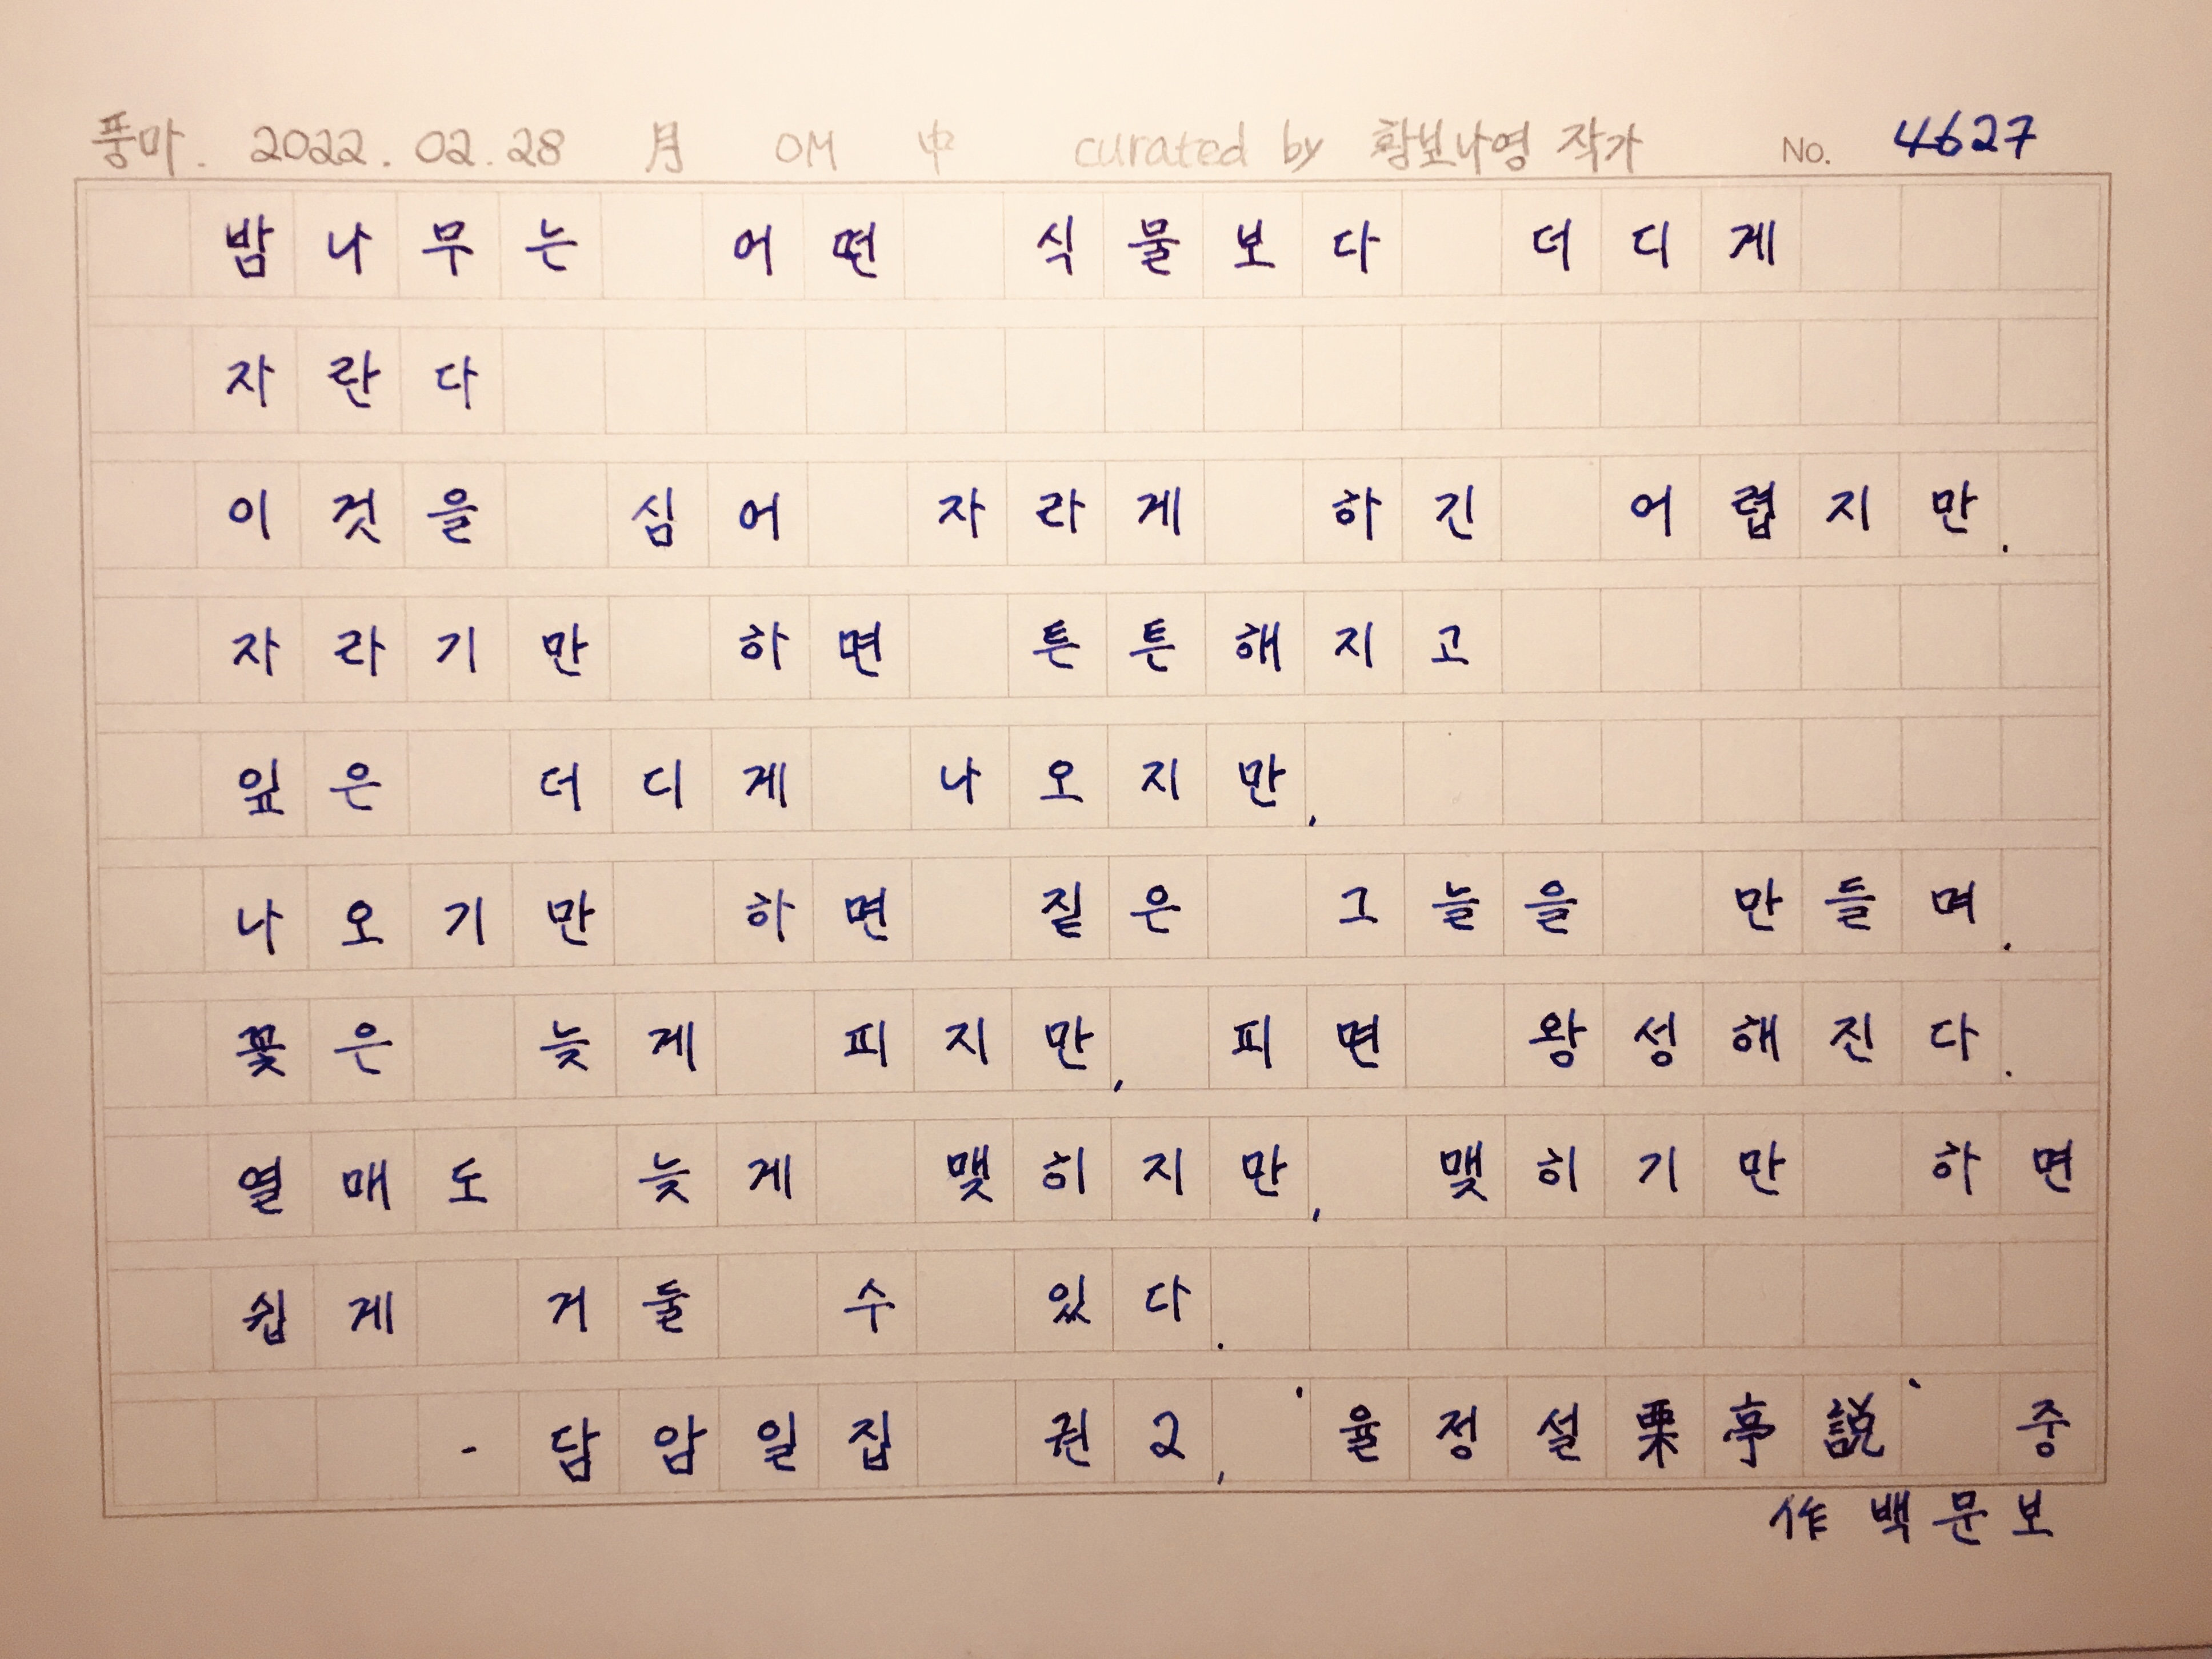 풍마. 2022.02.28 月 OM 中 curated by 황보나영 작가 No. 4627
밤나무는 어떤 식물보다 더디게
자란다
이것을 심어 자라게 하긴 어렵지만.
자라기만 하면 튼튼해지고
잎은 더디게 나오지만,
나오기만 하면 짙은 그늘을 만들며.
꽃은 늦게 피지만, 피면 왕성해진다.
열매도 늦게 맺히지만, 맺히기만 하면
쉽게 거둘 수 있다.
- 담암일집 권2, '율정설栗亭説' 중
作 백문보